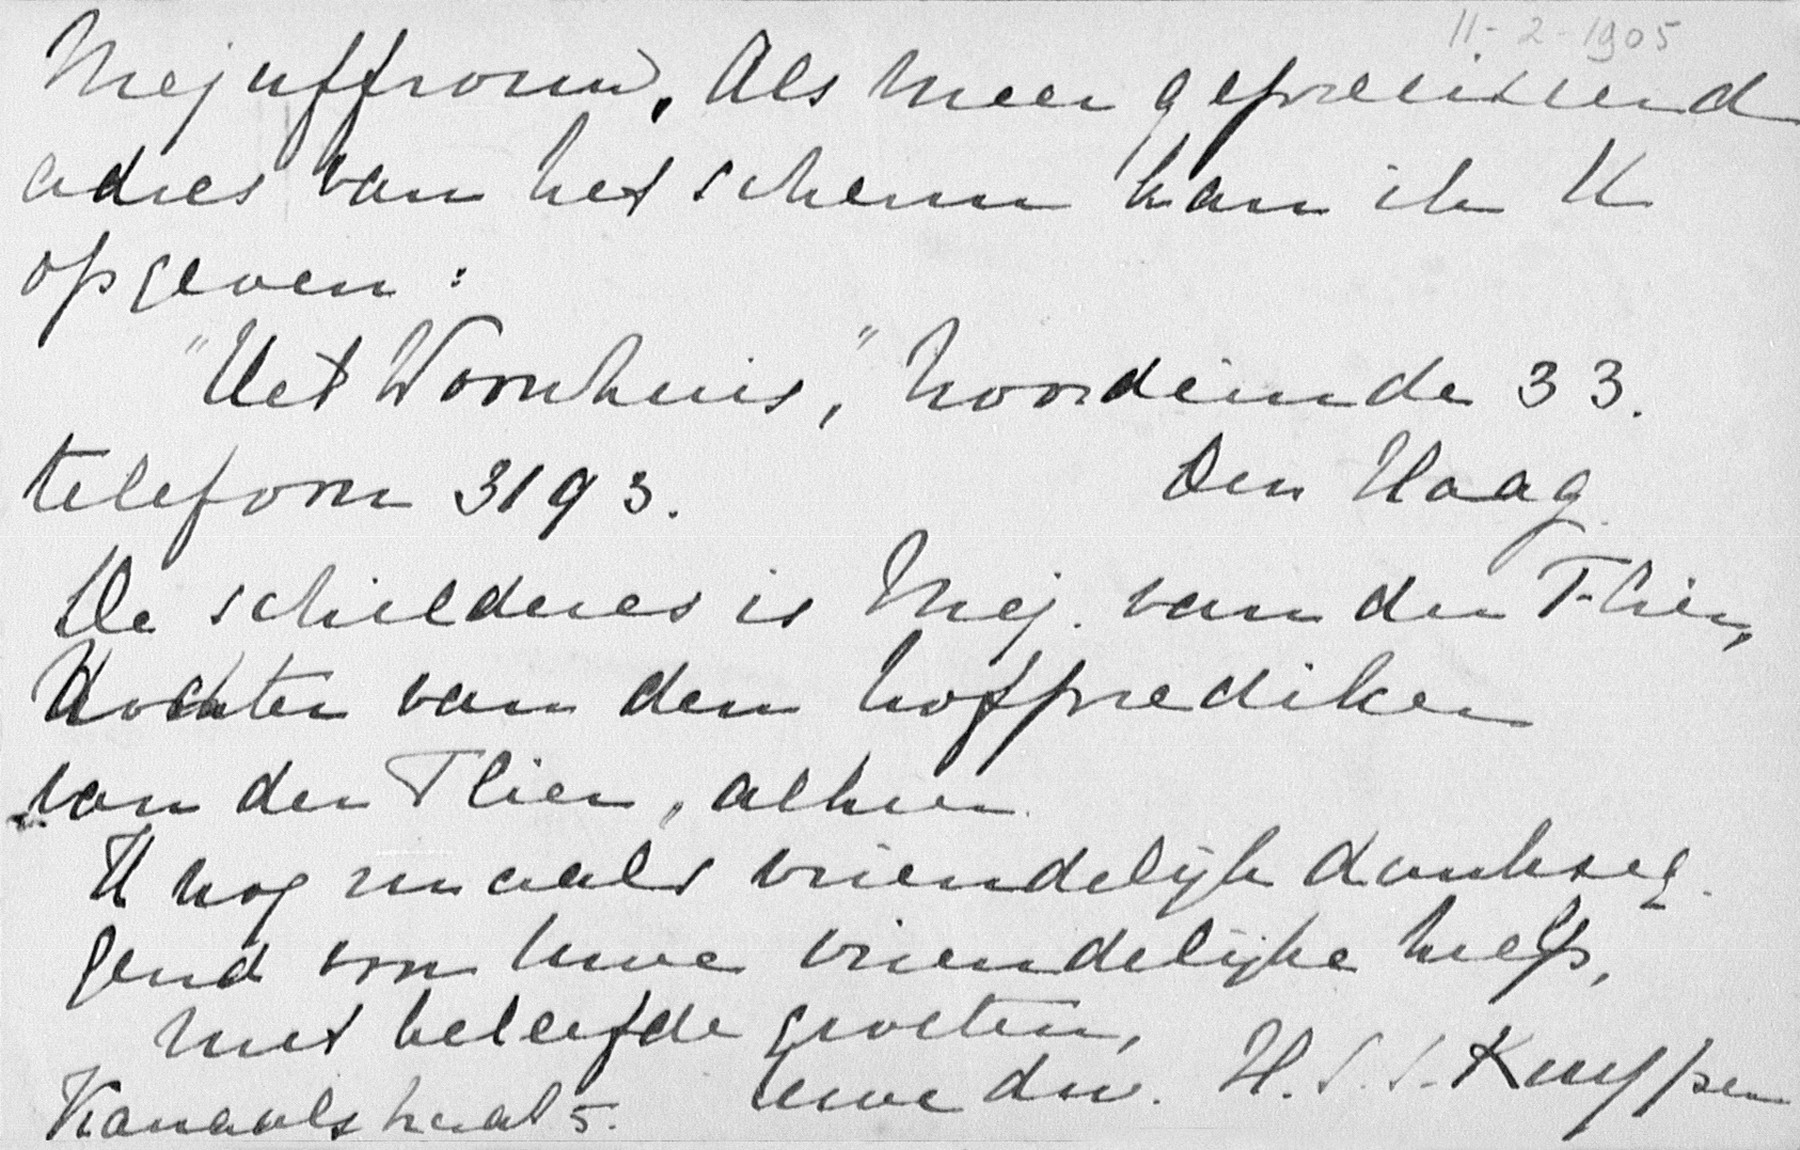 11-2-1905
Mejuffrouw, Als meer gepreciseerd
adres van het scherm kan ik U
opgeven:
"Het Woonhuis," Noordeinde 33.
telefoon 3193. Den Haag.
De schilderes is Mej. van der Flier,
dochter van den hofprediker
van der Flier, alhier.
U nogmaals vriendelijk dankzeg-
gend voor Uwe vriendelijke hulp,
met beleefde groeten,
Kanaalstraat 5. Uwe dw. H. S. S. Kuyper